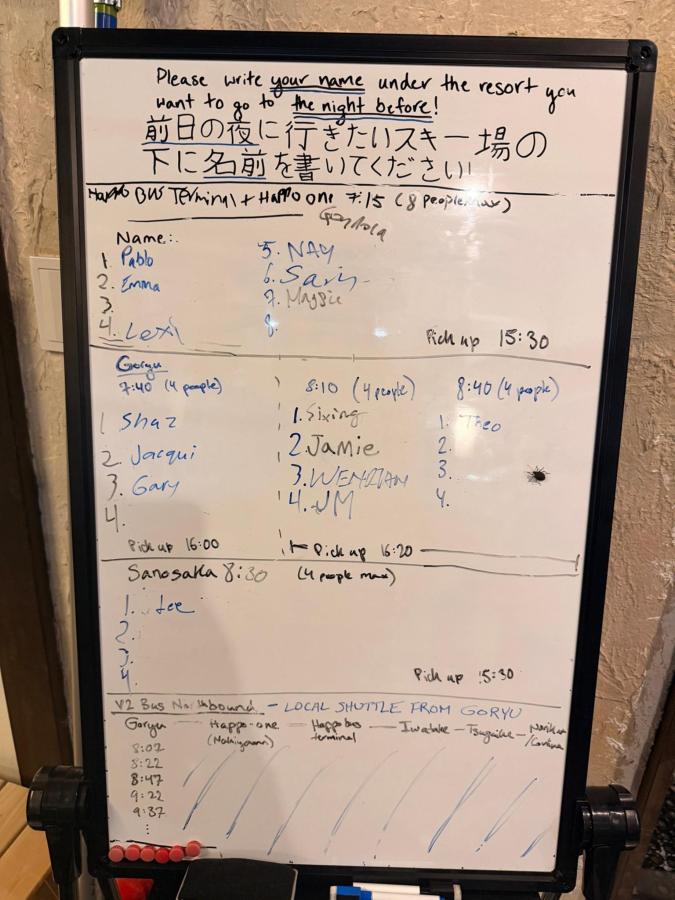 Please write your name under the resort you
want to go to the night before!
前日の夜に行きたいスキー場の
下に名前を書いてください!
Happo Bus Terminal + Happo one 7:15 (8 people max)
Gondola
Name:
1. Pablo
2. Emma
3.
4. Lexi
5. NAY
6.
7. Maggie
8.
Pick up 15:30
Goryu
7:40 (4 people)
1 Shaz
2. Jacqui
3. Gary
4.
Pick up 16:00
8:10 (4 people)
1. Sixing
2 Jamie
3.
4. JM
8:40 (4 people)
1. Theo
2.
3.
4.
Pick up 16:20
Sanosaka 8:30 (4 people max)
1. Lee
2.
3.
4.
Pick up 15:30
V2 Bus Northbound - LOCAL SHUTTLE FROM GORYU
Goryu — Happo-one — Happo bus — Iwatake — Tsugaike — Norikura
terminal /Cortina
8:02
8:22
8:47
9:22
9:37
⋮